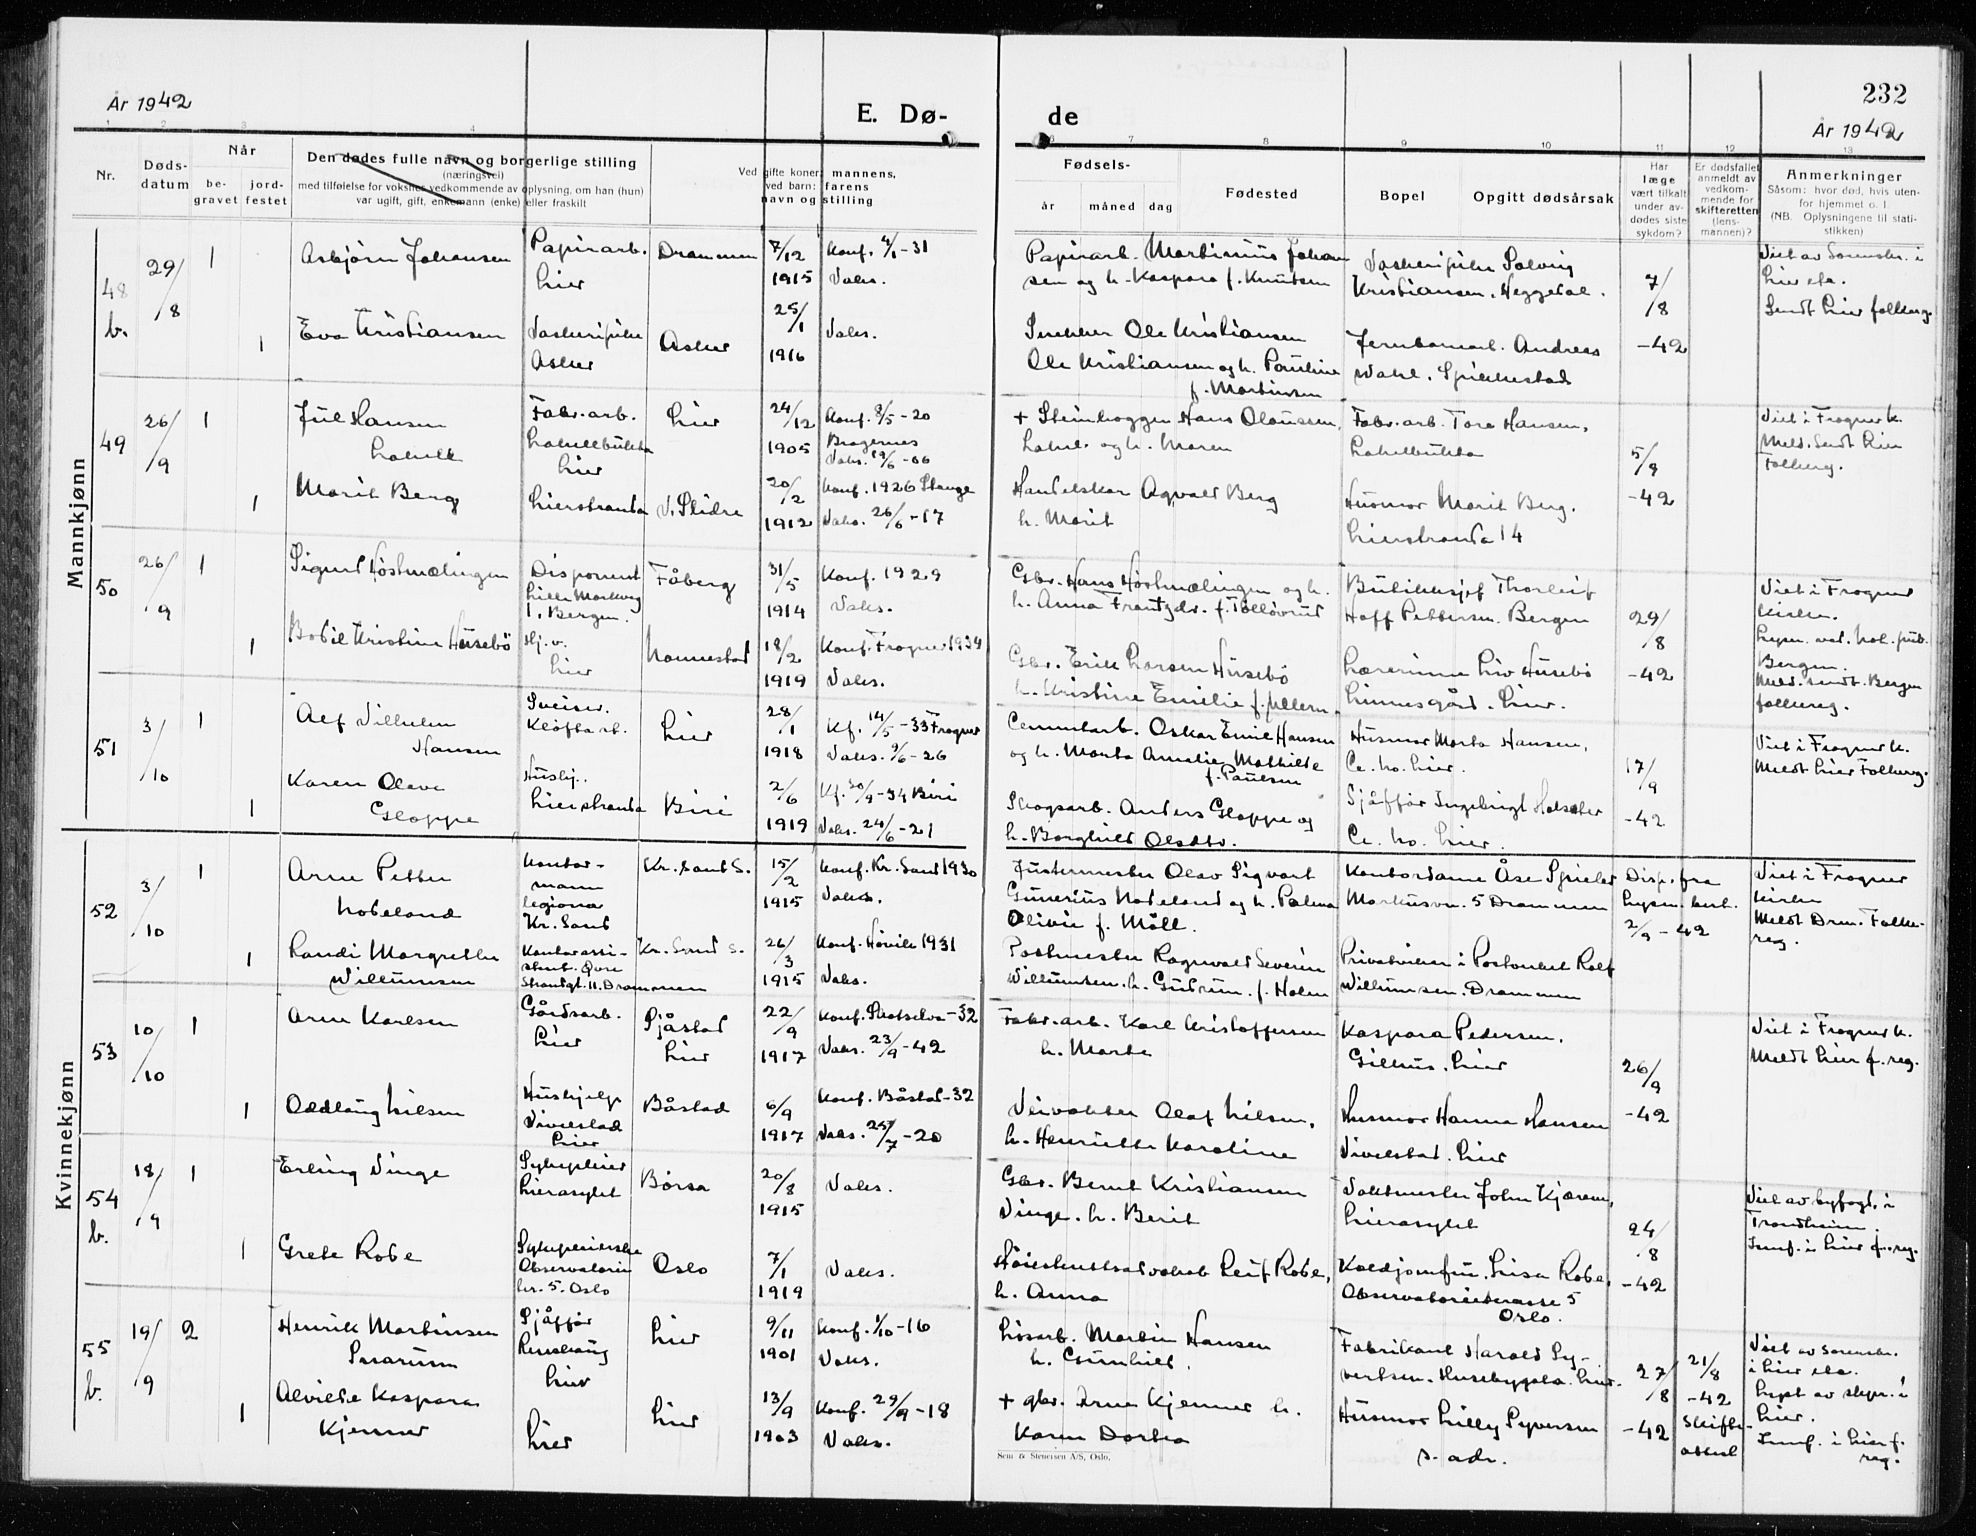 232
År 1942
E. Dø-
de
År 1942
1 2 3 4 6 7 8 9 10 11 12 13
Nr.
Døds-
datum
Når
be-
gravet
jord-
festet
Den dødes fulle navn og borgerlige stilling
(næringsvei)
med tilføielse for voksnes vedkommende av oplysning, om han (hun)
var ugift, gift, enkemann (enke) eller fraskilt
Ved gifte koner: mannens,
ved barn: farens
navn og stilling
Fødsels-
år måned dag
Fødested
Bopel
Opgitt dødsårsak
Har
læge
vært tilkalt
under av-
dødes siste
sykdom?
Er dødsfallet
anmeldt av
vedkom-
mende for
skifteretten
(lens-
mannen)?
Anmerkninger
Såsom: hvor død, hvis uten-
for hjemmet o. l.
(NB. Oplysningene til stati-
stikken)
Mannkjønn
Kvinnekjønn
48
b.
29/8
1
Asbjørn Johansen
Papirarb.
Lier
Drammen
7/12
1915
Konf. 4/1-31
Vaks.
Papirarb. Martinius Johan
sen og h. Kaspara f. Knutsen
Vaskeripike Solveig
Kristiansen, Heggedal.
7/8
-42
Viet av Sorenskr. i
Lier etc.
Sendt Lier folkereg.
1
Eva Kristiansen
Vaskeripike
Asker
Asker
25/1
1916
Vaks.
Snekker Ole Kristiansen
Ole Kristiansen og h. Pauline
f. Martinsen
Jernbanearb. Andreas
Wahl, Spikkestad
49
26/9
1
Jul Hansen
Lahell
Fabr.arb.
Lahellbukta
Lier
Lier
24/12
1905
Konf. 8/5-20
Bragernes
Vaks. 19/6-06
+ Steinhogger Hans Olaussen,
Lahel. og h. Maren
Fabr. arb. Tore Hansen,
Lahelbukta
5/9
-42
Viet i Frogner k.
Meld. sendt Lier
Folkereg.
1
Marit Berg
Lierstranda
V. Slidre
20/2
1912
Konf. 1926 Stange
Vaks. 26/6-17
Handelskar Aqvald Berg
h. Marit
Husmor Marit Berg.
Lierstranda 14
50
26/9
1
Sigurd Høstmælingen
Disponent
Lille Markvei
1, Bergen.
Fåberg
31/5
1914
Konf. 1929
Vaks.
Gbr. Hans Høstmælingen og h.
h. Anna Frantzdr. f. Tolløvrud
Butikksjef Thorleif
Hoff Pettersen. Bergen
29/8
-42
Viet i Frogner
kirke.
Lysn. ved. not. pub.
Bergen.
Meld. sendt. Bergen
folkereg.
1
Bodil Kristine Husebö
Hj.v.
Lier
Nannestad
18/2
1919
Konf. Frogner 1934
Vaks.
Gbr. Erik Larsen Husebö
h. Kristine Emilie f. Ullern.
Lærerinne Liv Husebö
Linnesgård. Lier.
51
3/10
1
Alf Vilhelm
Hansen
Sveiser.
Kløfta st.
Lier
28/1
1918
Kf. 14/5-33 Frogner
Vaks. 9/6-26
Cementarb. Oskar Emil Hansen
og h. Marta Amalie Mathilde
f. Paulsen
Husmor Marta Hansen,
Ce. No. Lier.
17/9
-42
Viet i Frogner k.
Meldt Lier Folkereg.
1
Karen Olave
Gloppe
Hushj.
Lierstranda
Biri
2/6
1919
Kf. 30/9-34 Biri
Vaks. 24/6-21
Skogsarb. Anders Gloppe og
h. Borghild Olsdtr.
Sjåffør Ingebrigt Holseter
Ce. No. Lier.
52
3/10
1
Arne Petter
Nodeland
Kontor-
mann
legionær
Kr. Sand
Kr. Sand S.
15/2
1915
Konf. Kr. Sand 1930
Vaks.
Justermester Olav Sigvart
Gunerius Nodeland og h. Palma
Olivie f. Möll.
Kontordame Åse Spieler
Markusvn. 5 Drammen
Disp. fra
lysn. beh.
2/9-42
Viet i Frogner
kirke
Meldt Drm. Folke-
reg.
1
Randi Margrethe
Willumsen
Kontorassi-
stent. Øvre
Strandgt. 11. Drammen
Kr. Sand S.
26/3
1915
Konf. Høvik 1931
Vaks.
Postmester Ragnvald Severin
Willumsen. h. Gudrun. f. Holm
Privatvikar i Postvesenet Rolf
Willumsen. Drammen
53
10/10
1
Arne Karlsen
Gårdsarb.
Lier
Sjåstad
Lier
22/9
1917
Konf. Skotselva-32
Vaks. 23/9-42
Fabr. arb. Karl Kristoffersen
h. Marte
Kaspara Pedersen.
Gilhus. Lier
26/9
-42
Viet i Frogner k.
Meldt Lier f. reg.
1
Oddlaug Nilsen
Hushjelp
Vivelstad
Lier
Båstad
6/9
1917
Konf. Båstad-32
Vaks. 25/7-20
Veivokter Olaf Nilsen.
h. Henriette Karoline
Husmor Hanna Hansen
Vivelstad. Lier
54
b.
18/9
1
Erling Vinge
Sykepleier
Lierasylet
Børsa
20/8
1915
Vaks.
Gbr. Bernt Kristiansen
Vinge. h. Berit
Vaktmester John Kjæren,
Lierasylet
24/8
-42
Viet av byfogd. i
Trondheim.
Innf. i Lier f. reg.
1
Grete Robe
Sykepleierske
Observatorie
ter. 5. Oslo
Oslo
7/1
1919
Vaks.
Høiesterettsadvokat Leif Robe,
h. Anna
Koldjomfru Lisa Robe.
Observatorieterasse 5
Oslo.
55
b.
19/9
2
Henrik Martinsen
Sjåffør
Lier
Lier
9/11
1901
Konf. 1/10-16
Vaks.
Løsarb. Martin Hansen
h. Gunhild.
Fabrikant Harald Sy-
vertsen. Husebygata. Lier.
27/8
-42
21/8
-42
Skifte-
attest
Viet av sorenskr.
i Lier etc.
Lyst av skpr. i
Lier.
Innf. i Lier f.
reg.
1
Alvilde Kaspara
Kjenner
Lier
Lier
13/9
1903
Konf. 29/9-18
Vaks.
+ gbr. Arne Kjenner h.
Karen Dortea
Husmor Lilly Syversen
s. adr.
Sem & Stenersen A/S, Oslo.